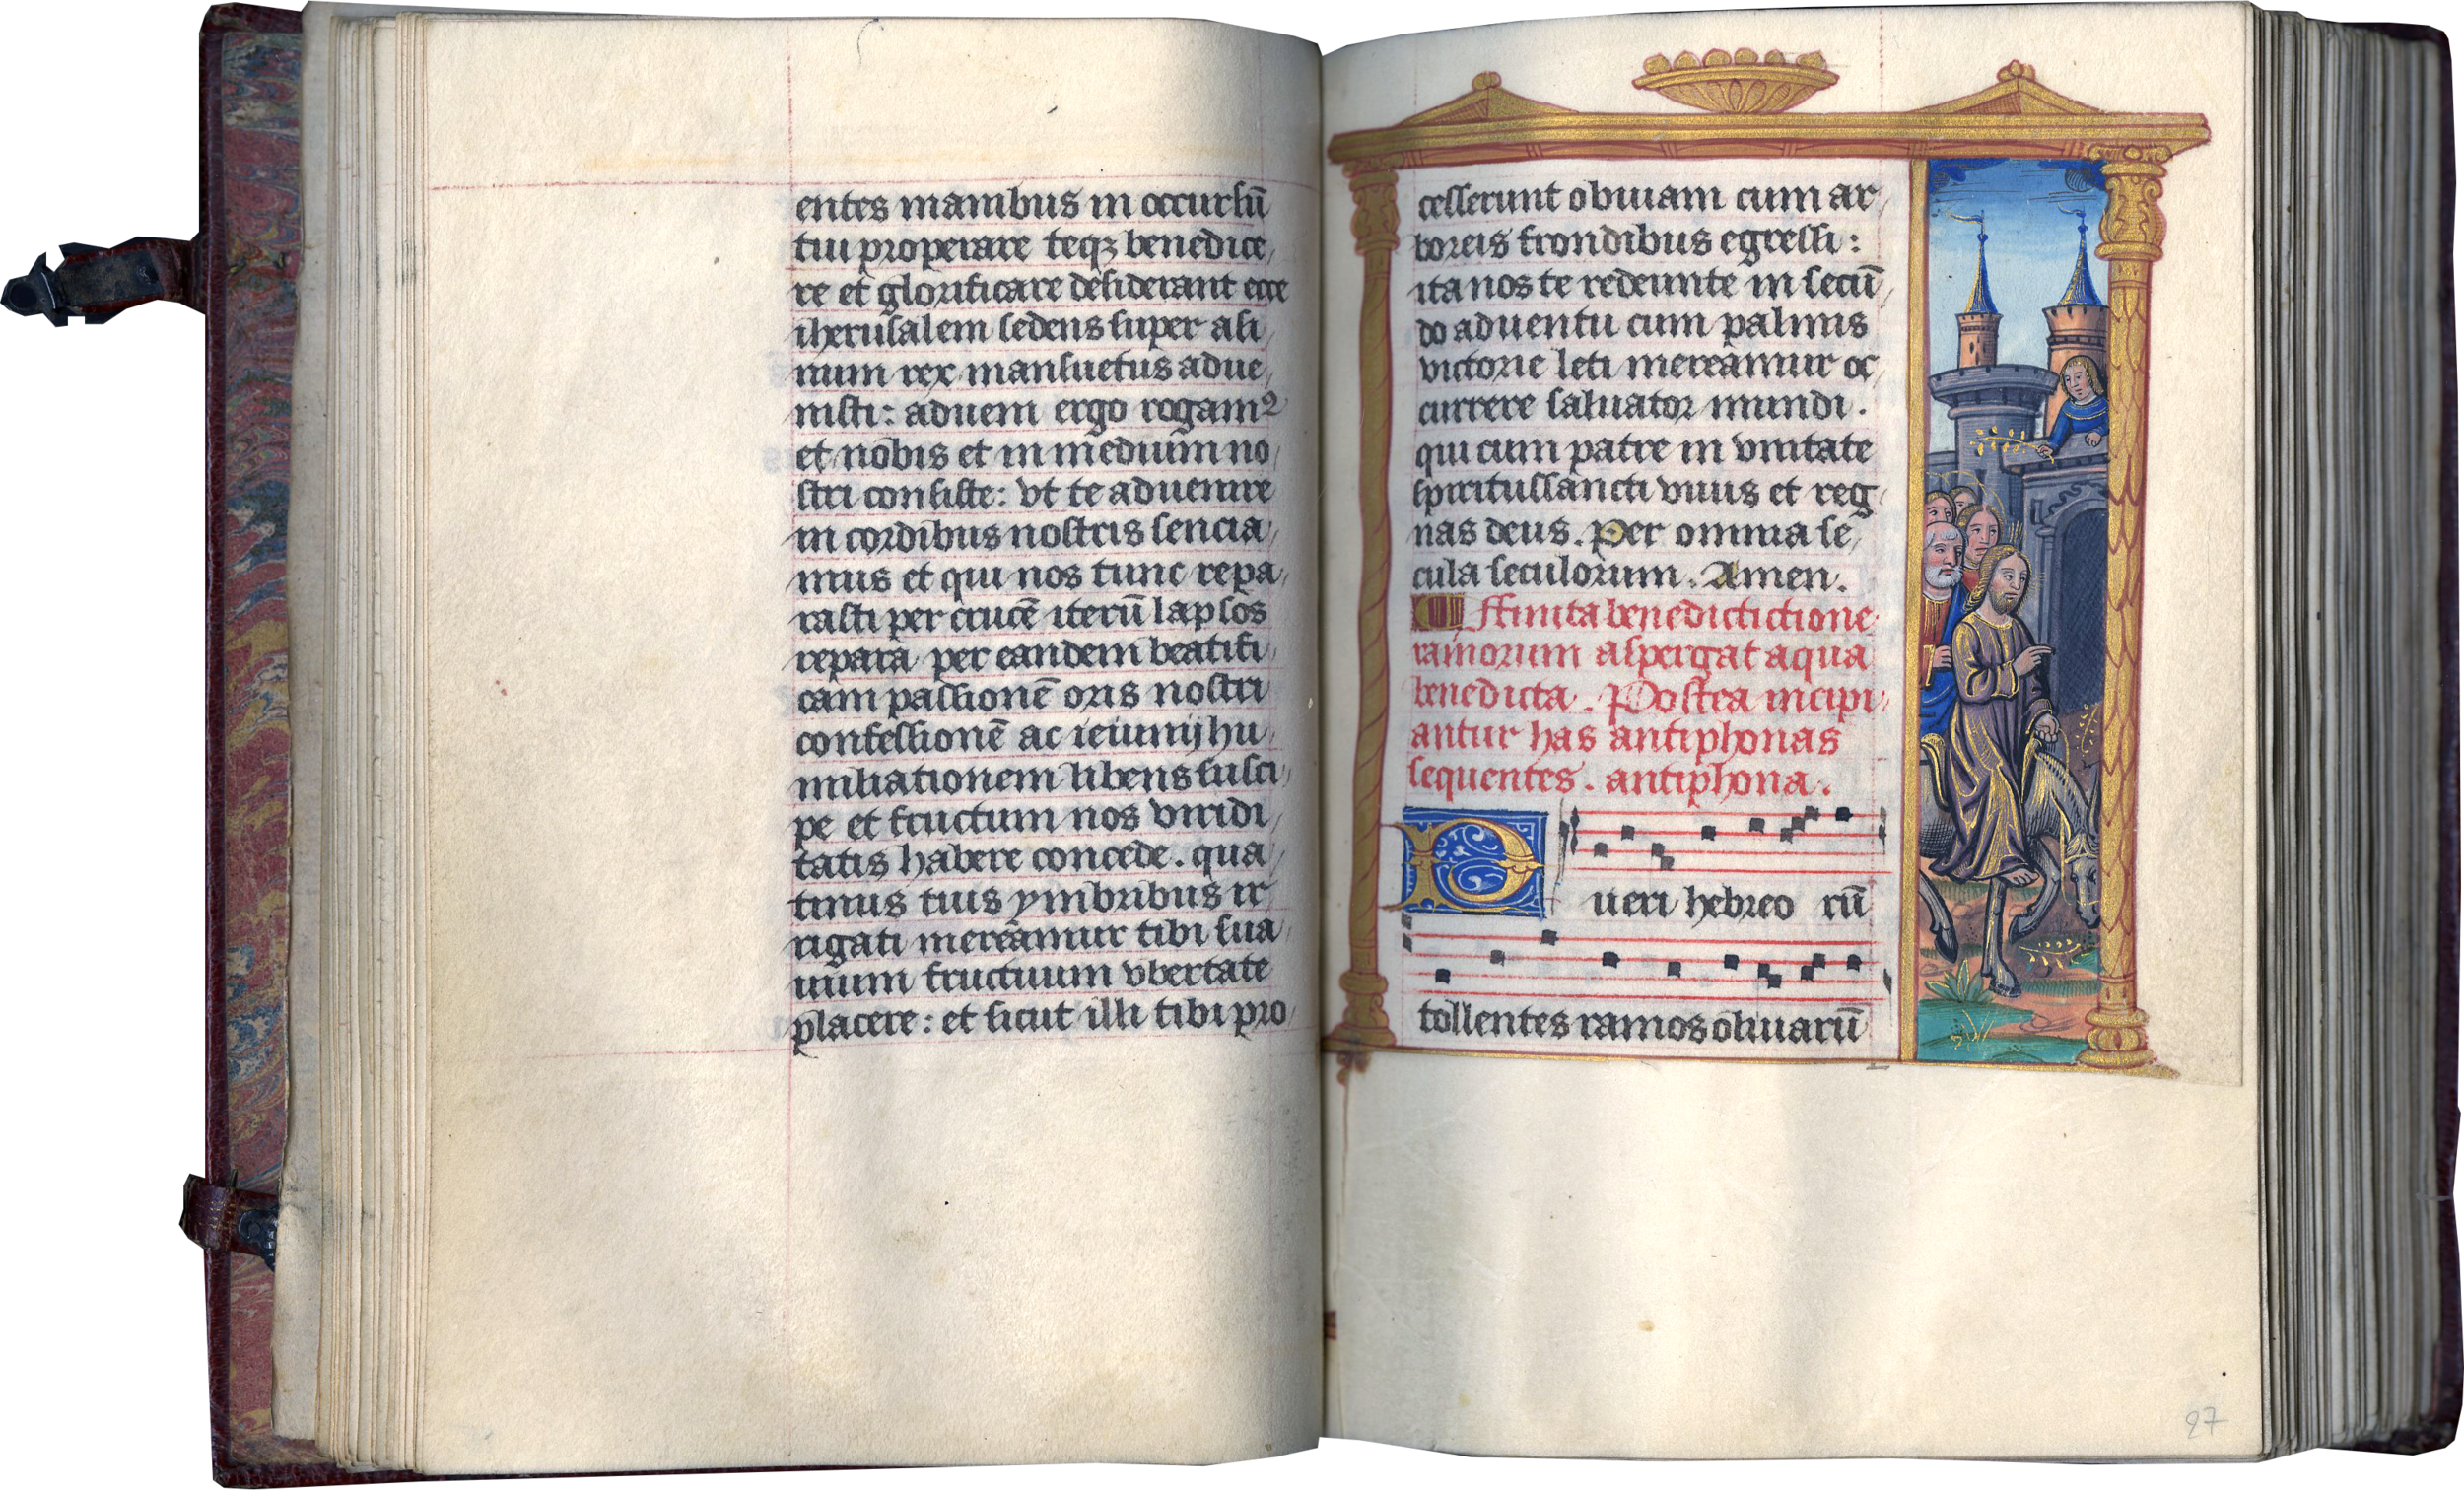 entes manibus in occursū
tui properare teqꝫ benedice
re et glorificare desiderant ecce
iherusalem sedens super asi
num rex mansuetus adue
nisti: adueni ergo rogamꝰ
et nobis et in medium no
stri consiste: vt te aduenire
in cordibus nostris sencia
mus et qui nos tunc repa
rasti per crucē iterū lapsos
repara per eandem beatifi
cam passionē oris nostri
confessionē ac ieiunij hu
miliationem libens susci
pe et fructum nos viridi
tatis habere concede. qua
tinus tuis ymbribus ir
rigati mereamur tibi sua
uium fructuum vbertate
placere: et sicut illi tibi pro
cesserunt obuiam cum ar
boreis frondibus egressi:
ita nos te redeunte in secū
do aduentu cum palmis
victorie leti mereamur oc
currere saluator mundi.
qui cum patre in vnitate
spiritussancti viuis et reg
nas deus. Per omnia se
cula seculorum. Amen.
Ffinita benedictictione
ramorum aspergat aqua
benedicta. Postea incipi
antur has antiphonas
sequentes. antiphona.
Pueri hebreo rū
tollentes ramos oliuarū
27